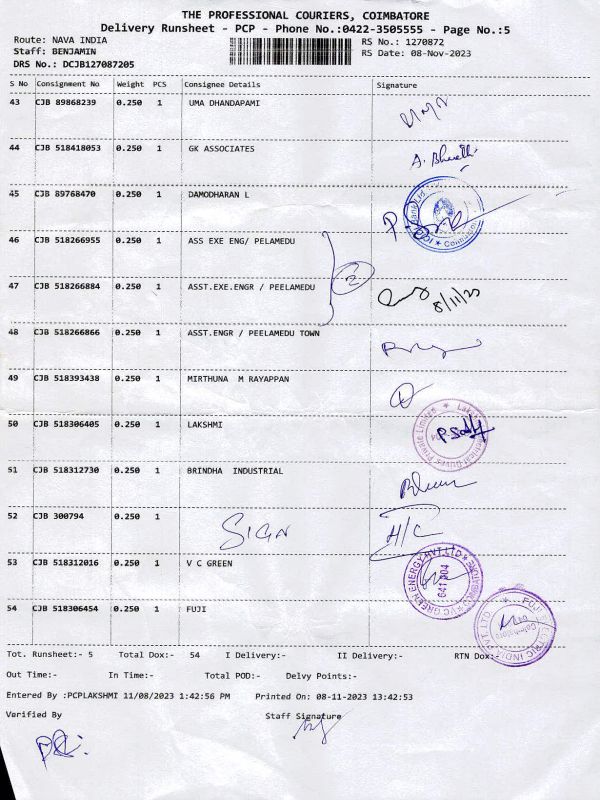 THE PROFESSIONAL COURIERS, COIMBATORE
Delivery Runsheet - PCP - Phone No.:0422-3505555 - Page No.:5
Route: NAVA INDIA
RS No.: 1270872
Staff: BENJAMIN
RS Date: 08-Nov-2023
DRS No.: DCJB127087205
S No Consignment No Weight PCS Consignee Details Signature
43 CJB 89868239 0.250 1 UMA DHANDAPAMI
44 CJB 518418053 0.250 1 GK ASSOCIATES A. Bharathi
45 CJB 89768470 0.250 1 DAMODHARAN L
46 CJB 518266955 0.250 1 ASS EXE ENG/ PELAMEDU
47 CJB 518266884 0.250 1 ASST.EXE.ENGR / PEELAMEDU 8/11/23
48 CJB 518266866 0.250 1 ASST.ENGR / PEELAMEDU TOWN
49 CJB 518393438 0.250 1 MIRTHUNA M RAYAPPAN
50 CJB 518306405 0.250 1 LAKSHMI
51 CJB 518312730 0.250 1 BRINDHA INDUSTRIAL
52 CJB 300794 0.250 1 SIGN H/C
53 CJB 518312016 0.250 1 V C GREEN VC GREEN ENERGY PVT LTD 641 004
54 CJB 518306454 0.250 1 FUJI
Tot. Runsheet:- 5 Total Dox:- 54 I Delivery:- II Delivery:- RTN Dox:-
Out Time:- In Time:- Total POD:- Delvy Points:-
Entered By :PCPLAKSHMI 11/08/2023 1:42:56 PM Printed On: 08-11-2023 13:42:53
Verified By Staff Signature